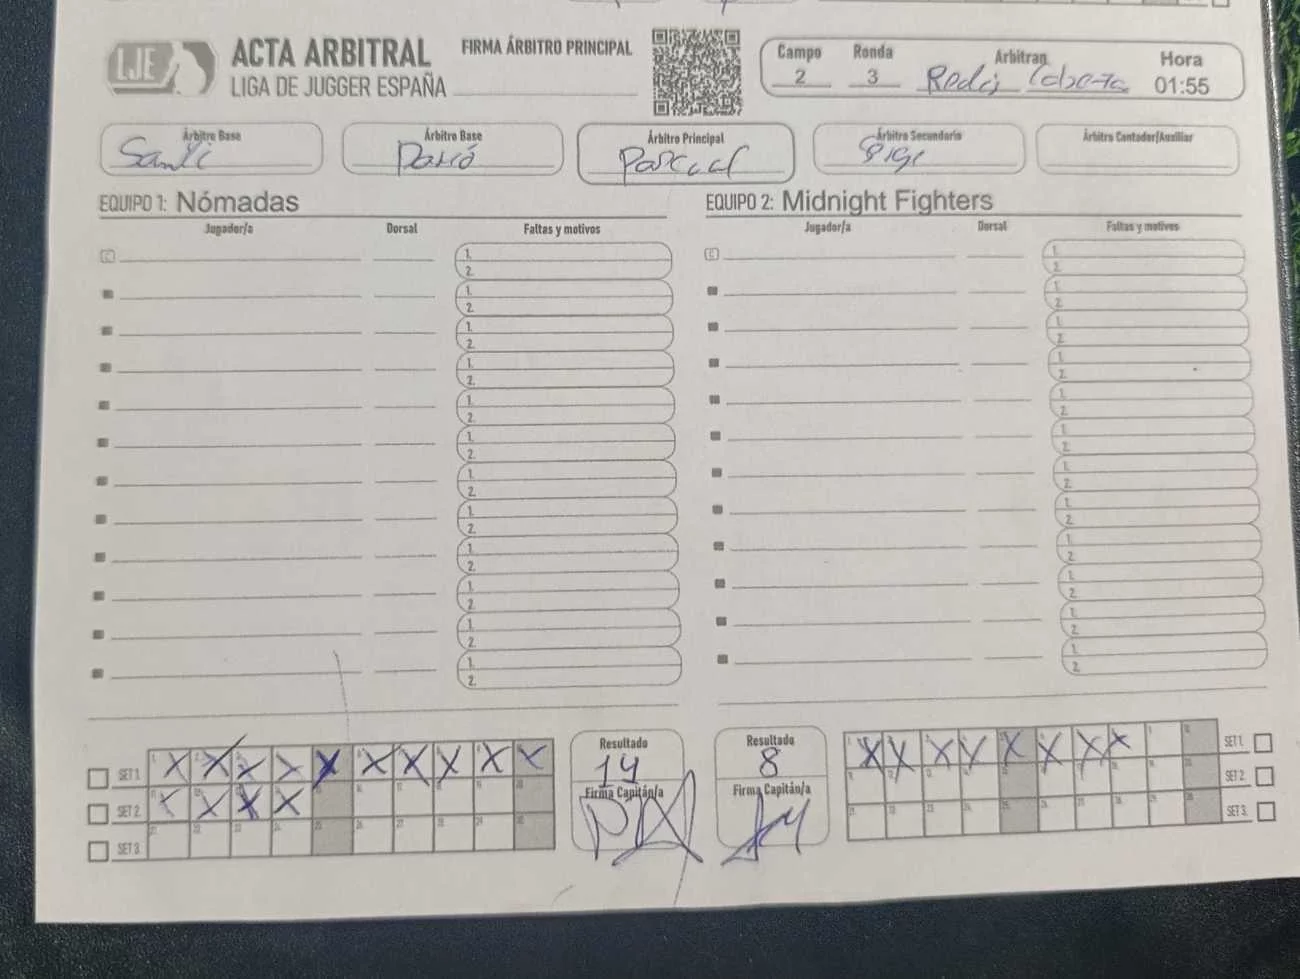 LJE
ACTA ARBITRAL
LIGA DE JUGGER ESPAÑA
FIRMA ÁRBITRO PRINCIPAL
Campo Ronda Arbitran Hora
2 3 01:55
Árbitro Base Árbitro Base Árbitro Principal Árbitro Secundario Árbitro Contador/Auxiliar
Santi Darió Pascual
EQUIPO 1: Nómadas EQUIPO 2: Midnight Fighters
Jugador/a Dorsal Faltas y motivos Jugador/a Dorsal Faltas y motivos
C 1. C 1.
2. 2.
1. 1.
2. 2.
1. 1.
2. 2.
1. 1.
2. 2.
1. 1.
2. 2.
1. 1.
2. 2.
1. 1.
2. 2.
1. 1.
2. 2.
1. 1.
2. 2.
1. 1.
2. 2.
1. 1.
2. 2.
1. 1.
2. 2.
Resultado Resultado
14 8
Firma Capitán/a Firma Capitán/a
SET 1. X X X X X X X X X X X X X X X X X X SET 1.
SET 2. X X X X SET 2.
SET 3. SET 3.